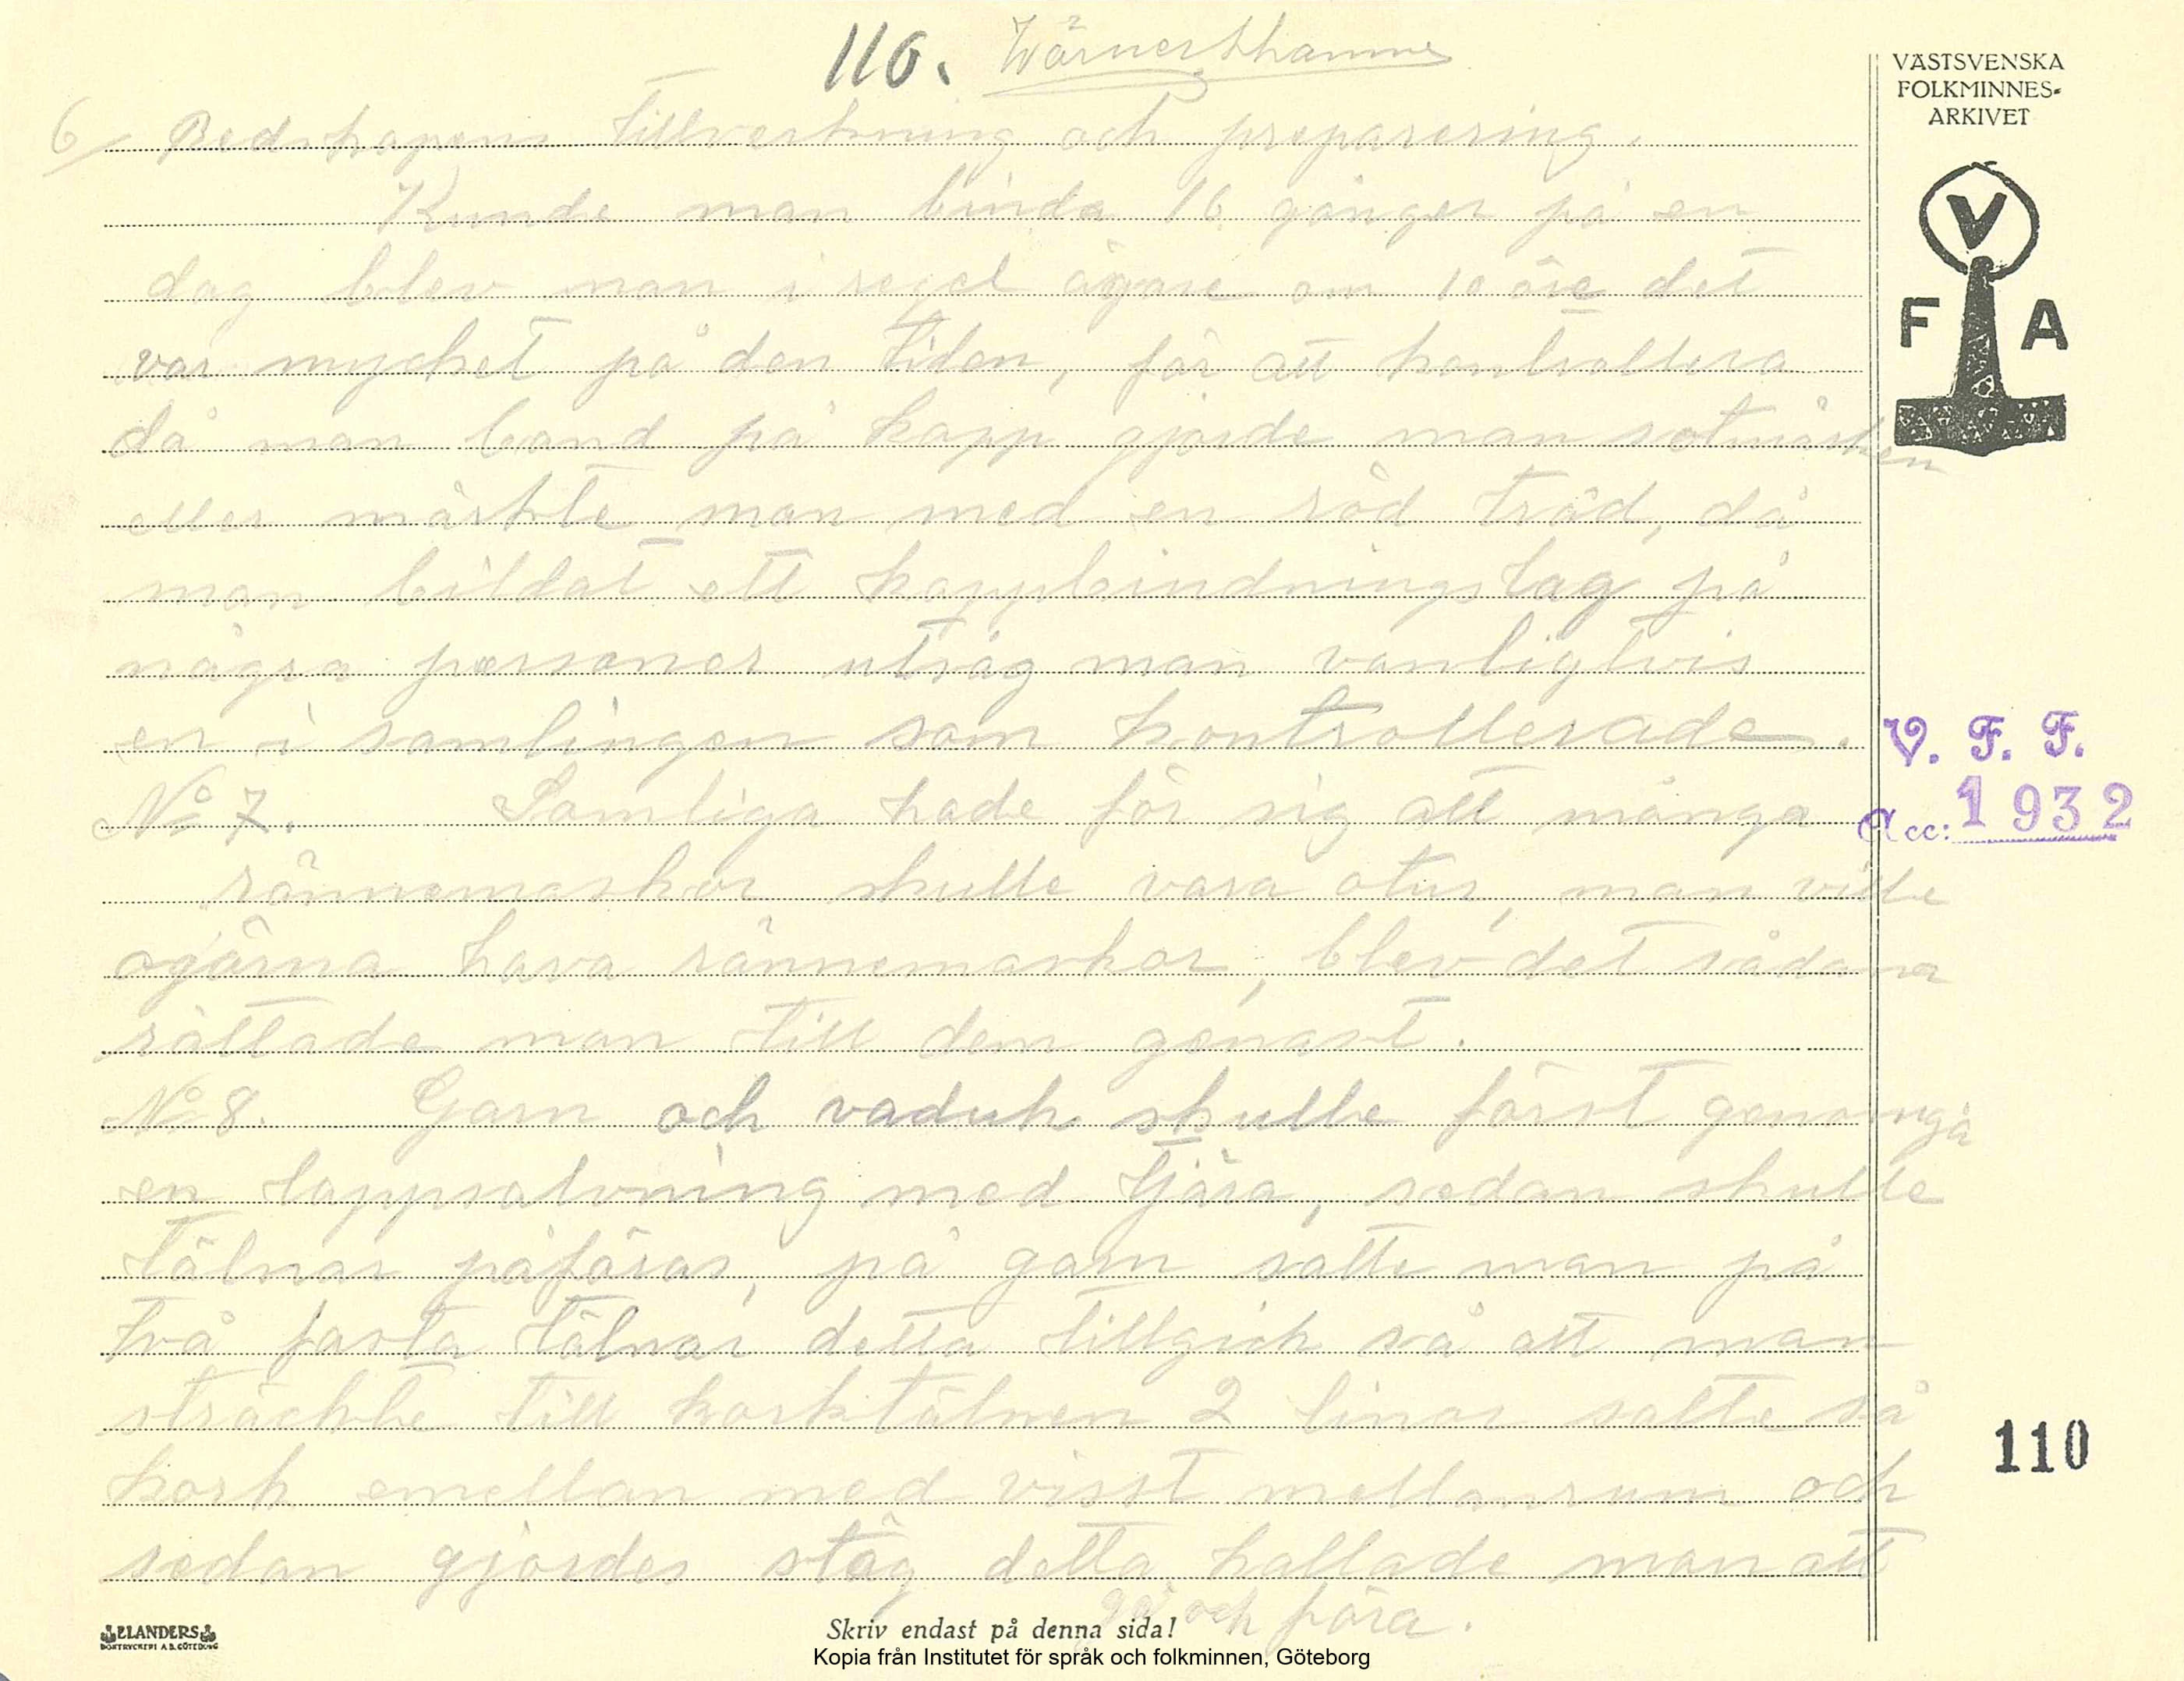 110. Wärnershamn
VÄSTSVENSKA
FOLKMINNES-
ARKIVET
V
F A
6/ Redskapens tillverkning och preparering.
Kunde man binda 16 gånger på en
dag blev man i regel ägare om 10 öre det
var mycket på den tiden, för att kontrollera
då man band på kapp gjorde man sotmärken
eller märkte man med en röd tråd, då
man bildat ett kappbindningslag på
några personer utsåg man vanligtvis
en i samlingen som kontrollerade.
V. F. F.
Acc: 1932
No 7. Somliga hade för sig att många
rännemaskor skulle vara otur, man ville
ogärna hava rännemaskor, blev det sådana
rättade man till dem genast.
No 8. Garn och vaduk skulle först genomgå
en lappsalvning med tjära, sedan skulle
tälnar påföras, på garn satte man på
två fasta tälnar detta tillgick så att man
sträckte till korktälnen 2 linor satte så
kork emellan med visst mellanrum och
110
sedan gjordes stäg detta kallade man att
gå och föra.
ELANDERS
BOKTRYCKERI A.B. GÖTEBORG
Skriv endast på denna sida!
Kopia från Institutet för språk och folkminnen, Göteborg